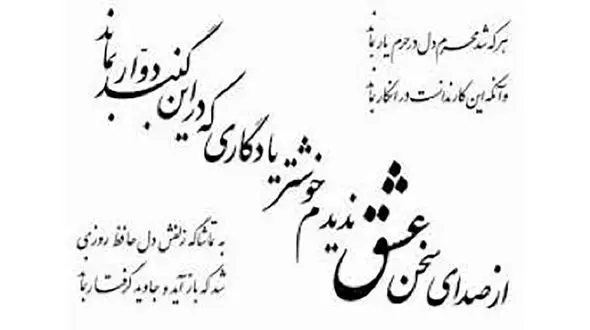 هر که شد محرم دل در حرم یار بماند
وآنکه این کار ندانست در انکار بماند
از صدای سخن عشق ندیدم خوشتر
یادگاری که در این گنبد دوّار بماند
به تماشاگه زلفش دل حافظ روزی
شد که باز آید و جاوید گرفتار بماند